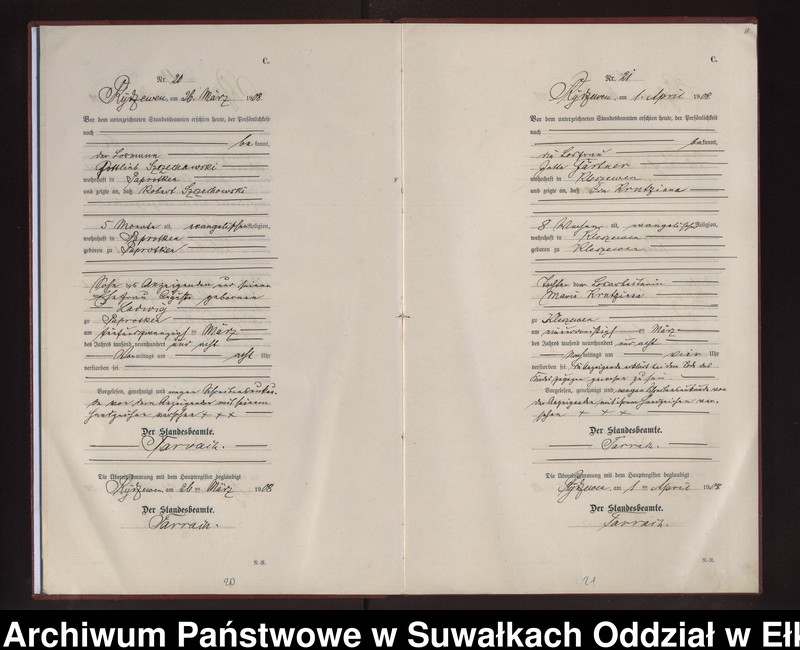 C.
Nr. 20
Rydzewen, am 26. März 1908.
Vor dem unterzeichneten Standesbeamten erschien heute, der Persönlichkeit
nach
bekannt,
der Losmann
Gottlieb Szczechowski
wohnhaft in Saprotken
und zeigte an, daß Robert Szczechowski
5 Monate alt, evangelischer Religion,
wohnhaft in Saprotken
geboren zu Saprotken
Sohn des Anzeigenden und seiner
Ehefrau Auguste geborenen
Ladwig
zu Saprotken
am fünfundzwanzigsten März
des Jahres tausend neunhundert und acht
Vormittags um acht Uhr
verstorben sei.
Vorgelesen, genehmigt und wegen Schreibensunkunde
von dem Anzeigenden mit seinem
Handzeichen versehen + + +
Der Standesbeamte.
Tarrach.
Die Übereinstimmung mit dem Hauptregister beglaubigt
Rydzewen, am 26 ten März 1908
Der Standesbeamte.
Tarrach.
N.-R.
20
11
C.
Nr. 21
Rydzewen, am 1. April 1908.
Vor dem unterzeichneten Standesbeamten erschien heute, der Persönlichkeit
nach
bekannt,
die Losfrau
Gärtner
wohnhaft in Kleszewen
und zeigte an, daß Krutzinna
8 Wochen alt, evangelischer Religion,
wohnhaft in Kleszewen
geboren zu Kleszewen
Tochter der Losarbeiterin
Marie Krutzinna
zu Kleszewen
am einunddreißigsten März
des Jahres tausend neunhundert und acht
Nachmittags um vier Uhr
verstorben sei. Die Anzeigende erklärt bei dem Tode des
Kindes zugegen gewesen zu sein
Vorgelesen, genehmigt und wegen Schreibensunkunde von
der Anzeigenden mit ihrem Handzeichen versehen + + +
Der Standesbeamte.
Tarrach.
Die Übereinstimmung mit dem Hauptregister beglaubigt
Rydzewen, am 1 ten April 1908
Der Standesbeamte.
Tarrach.
N.-R.
21
Archiwum Państwowe w Suwałkach Oddział w Ełk